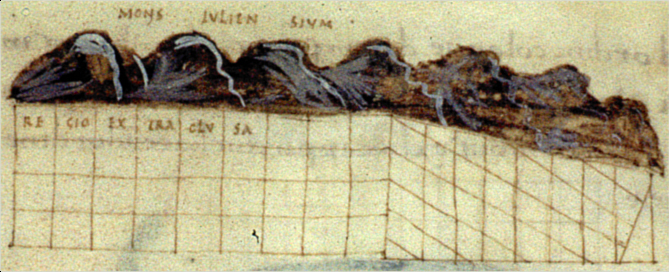 MONS IVLIEN SIVM
RE GIO EX TRA CLV SA